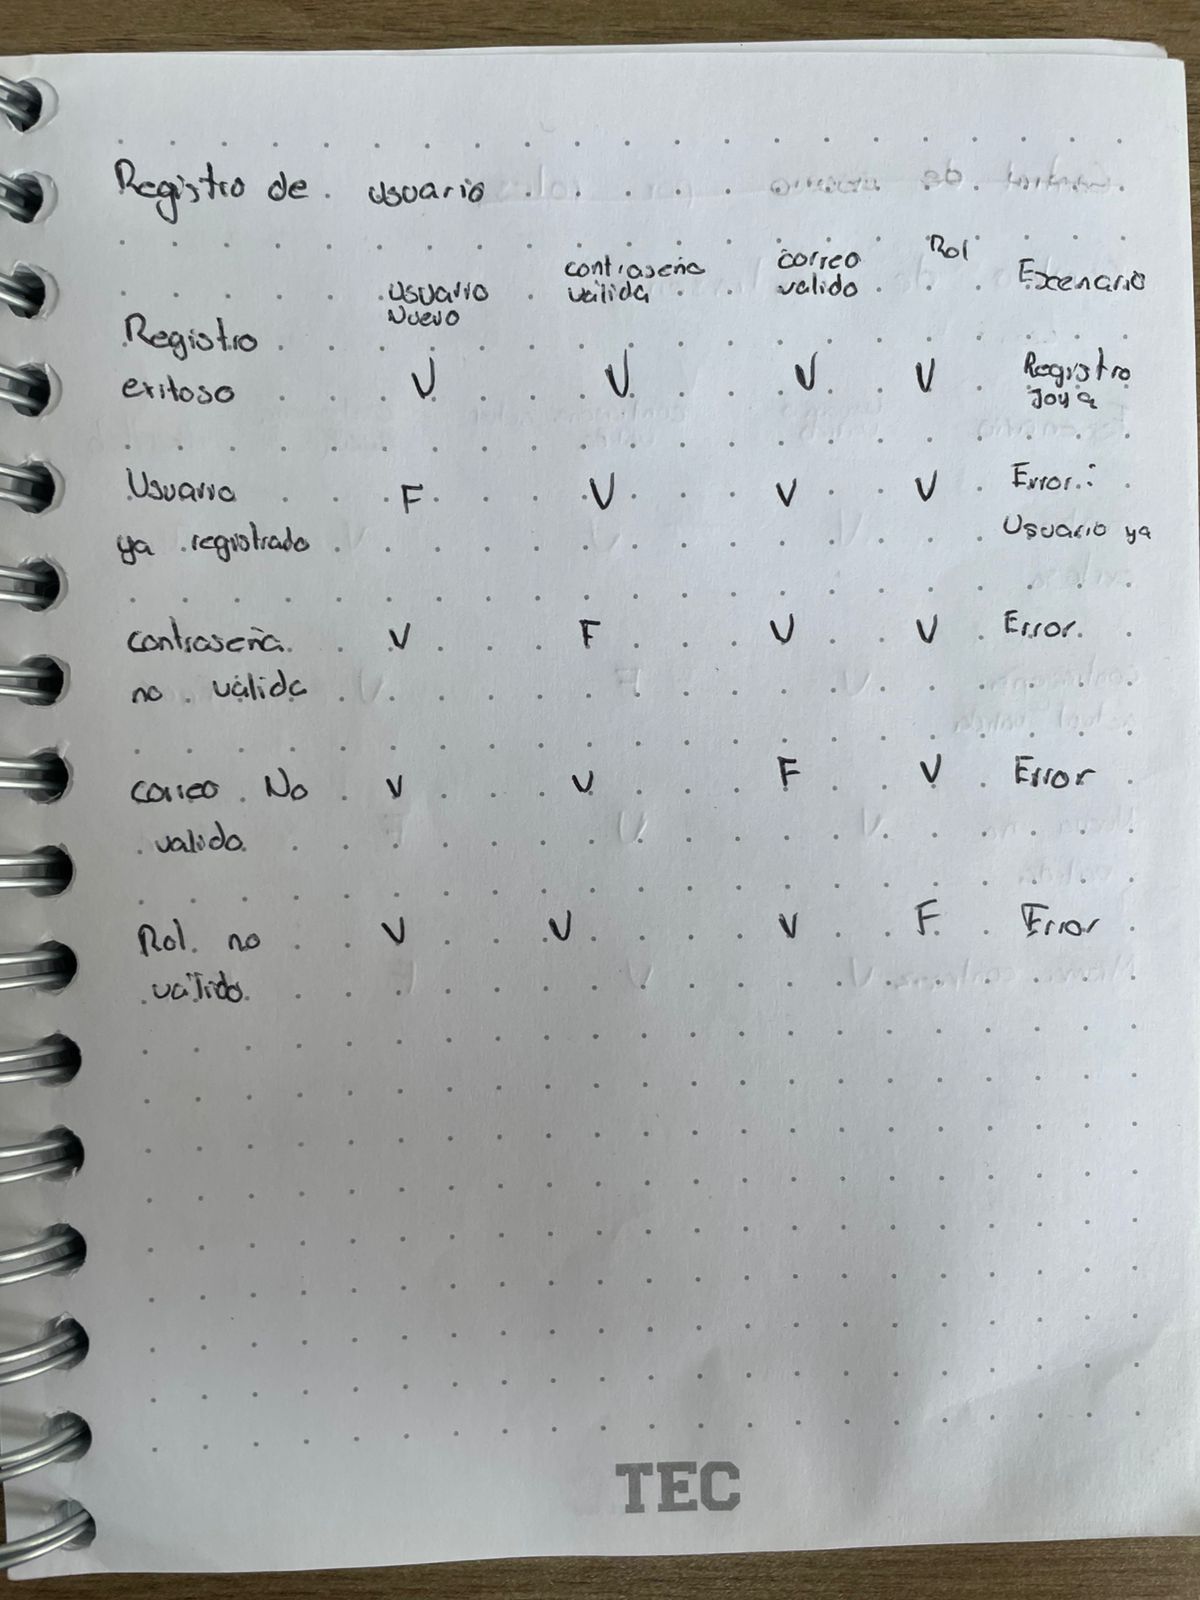 Registro de usuario
Usuario Nuevo contraseña válida correo valido Rol Escenario
Registro exitoso V V V V Registro Joya
Usuario ya registrado F V V V Error: Usuario ya
contraseña no válida V F V V Error
correo No valido V V F V Error
Rol no válido V V V F Error
TEC